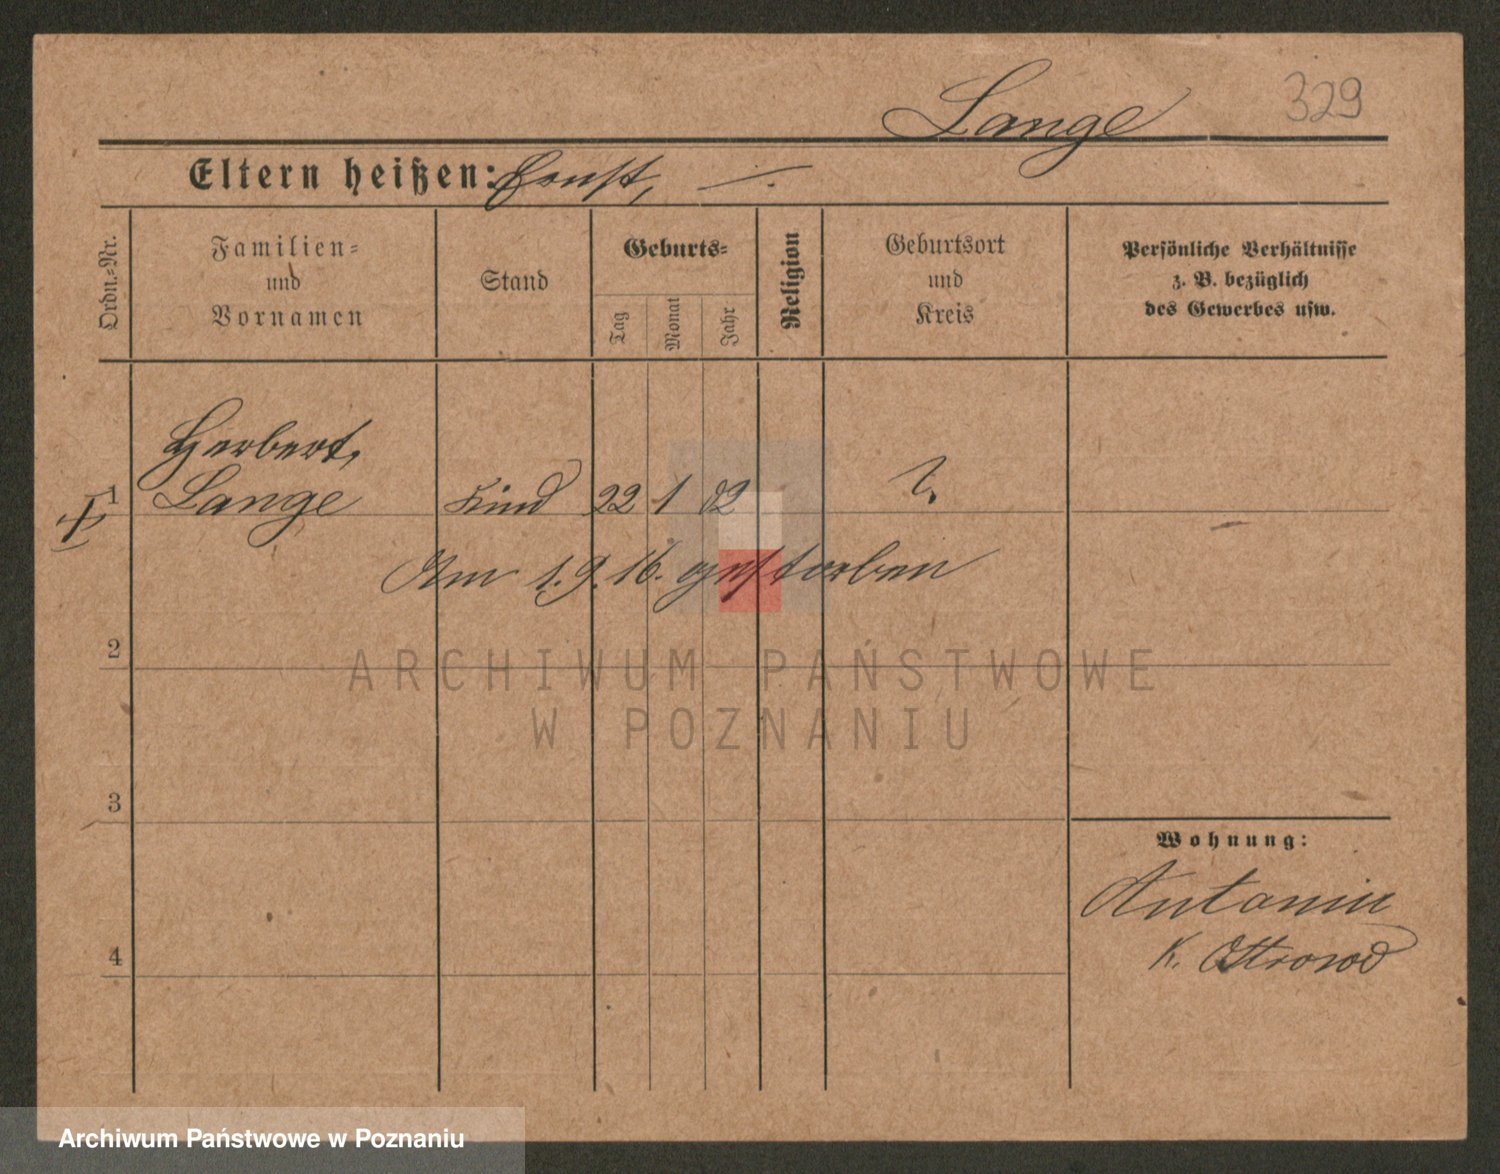 Lange 329
Eltern heißen: Ernst, —.
Ordn.=Nr.
Familien=
und
Vornamen
Stand
Geburts=
Tag
Monat
Jahr
Religion
Geburtsort
und
Kreis
Persönliche Verhältnisse
z. B. bezüglich
des Gewerbes usw.
Herbert,
1 Lange Kind 22 1 02 ?
Am 1.9.16. gestorben
2
ARCHIWUM PAŃSTWOWE
W POZNANIU
3
Wohnung:
Antonin
4 K. Ostrowo
Archiwum Państwowe w Poznaniu